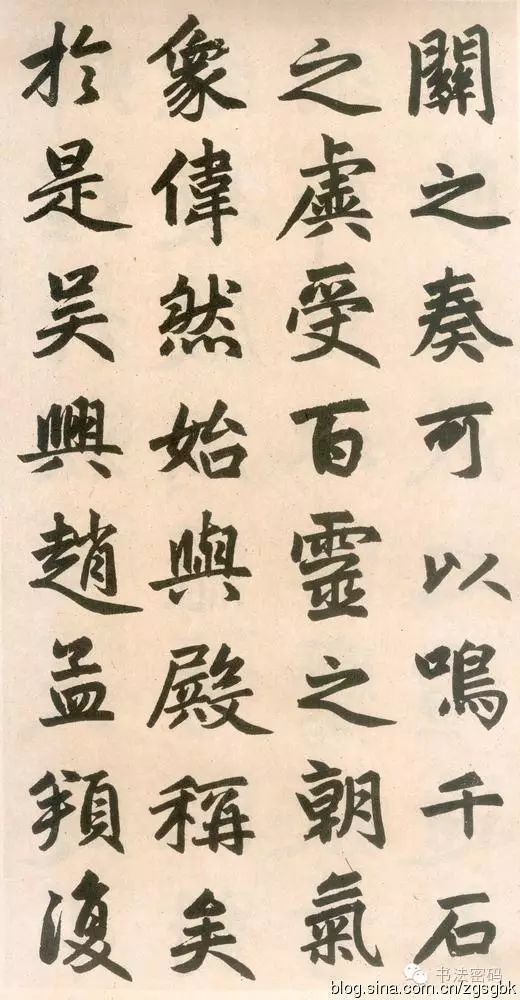 關之奏可以鳴千石
之虡受百靈之朝氣
象偉然始與殿稱矣
於是吴興趙孟頫復
书法密码
blog.sina.com.cn/zgsgbk